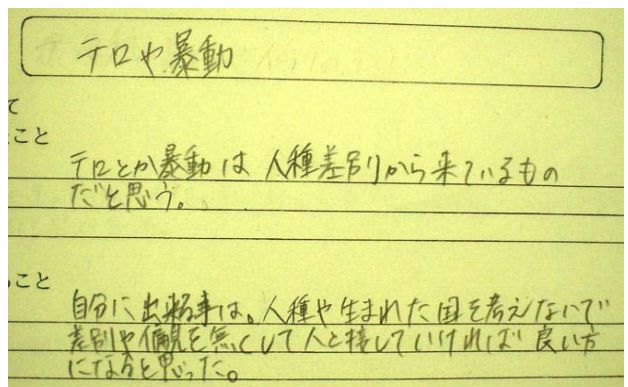 テロや暴動
て
こと
テロとか暴動は人種差別から来ているもの
だと思う。
こと
自分に出来る事は。人種や生まれた国を考えないで
差別や偏見を無くして人と接していければ良い方
になると思った。